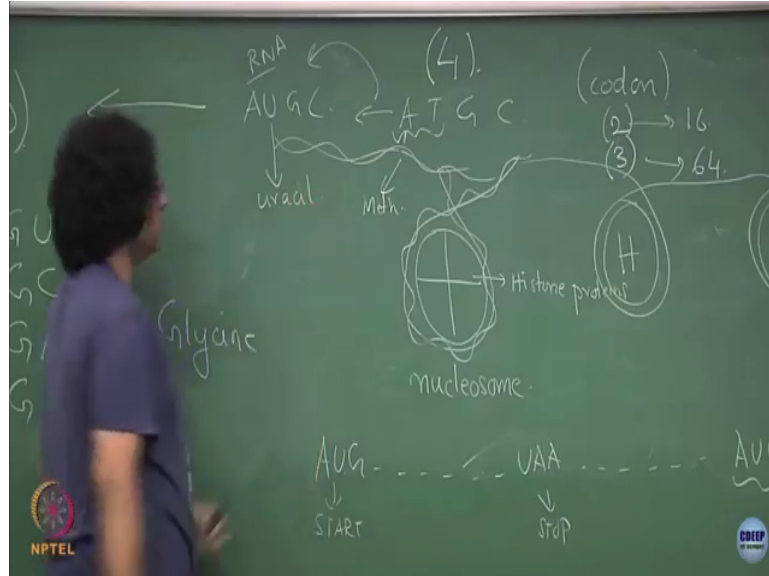 RNA
(4).
(codon)
AUGC. ← ATGC
(2) → 16.
(3) → 64.
uracil
Meth.
H
Histone proteins
nucleosome.
G U
G C
G
G
Glycine
AUG - - - - - - UAA - - - - - - AU
START
STOP
NPTEL
CDEEP